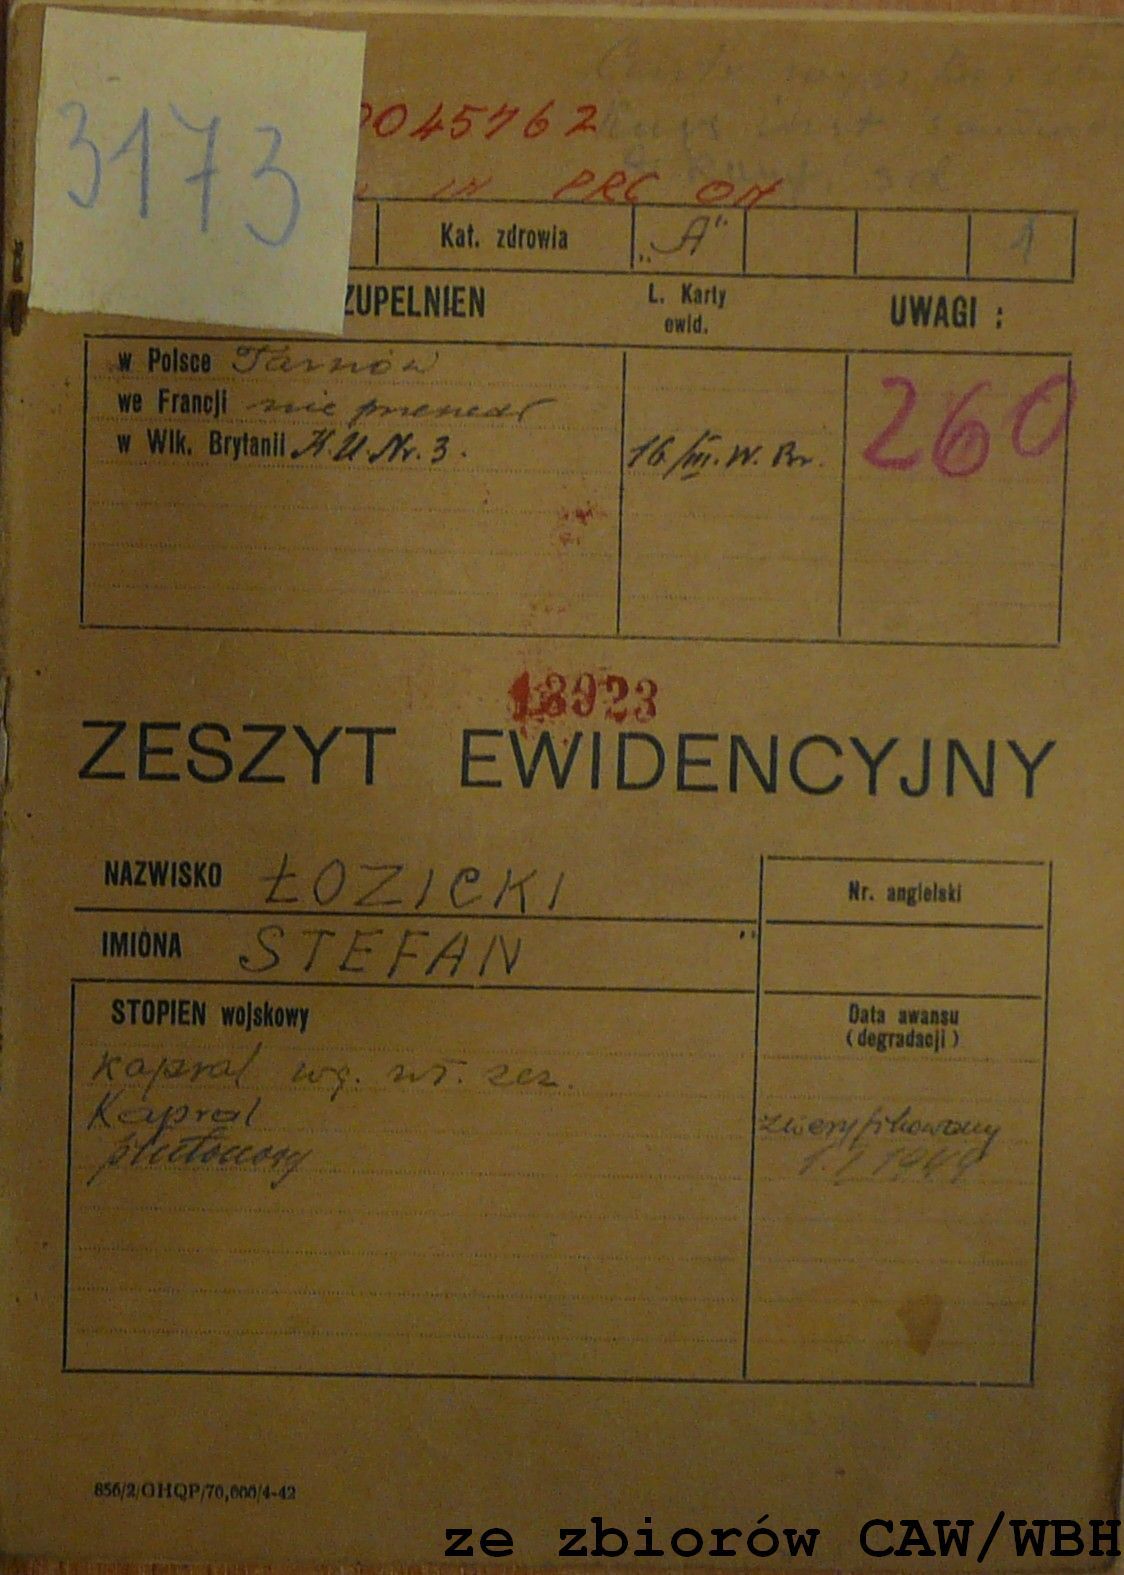 3173
0045762
IN PRC ON
Kat. zdrowia „A” 1
ZUPELNIEN L. Karty ewid. UWAGI :
w Polsce Tarnów
we Francji nie
w Wlk. Brytanii K.U.Nr. 3. 16/III. W. Br. 260
18923
ZESZYT EWIDENCYJNY
NAZWISKO ŁOZICKI
Nr. angielski
IMIONA STEFAN
STOPIEN wojskowy
Data awansu
(degradacji)
kapral wg. wł. zez.
Kapral zweryfikowany
plutonowy 1.I 1944
856/2/OHQP/70,000/4-42
ze zbiorów CAW/WBH